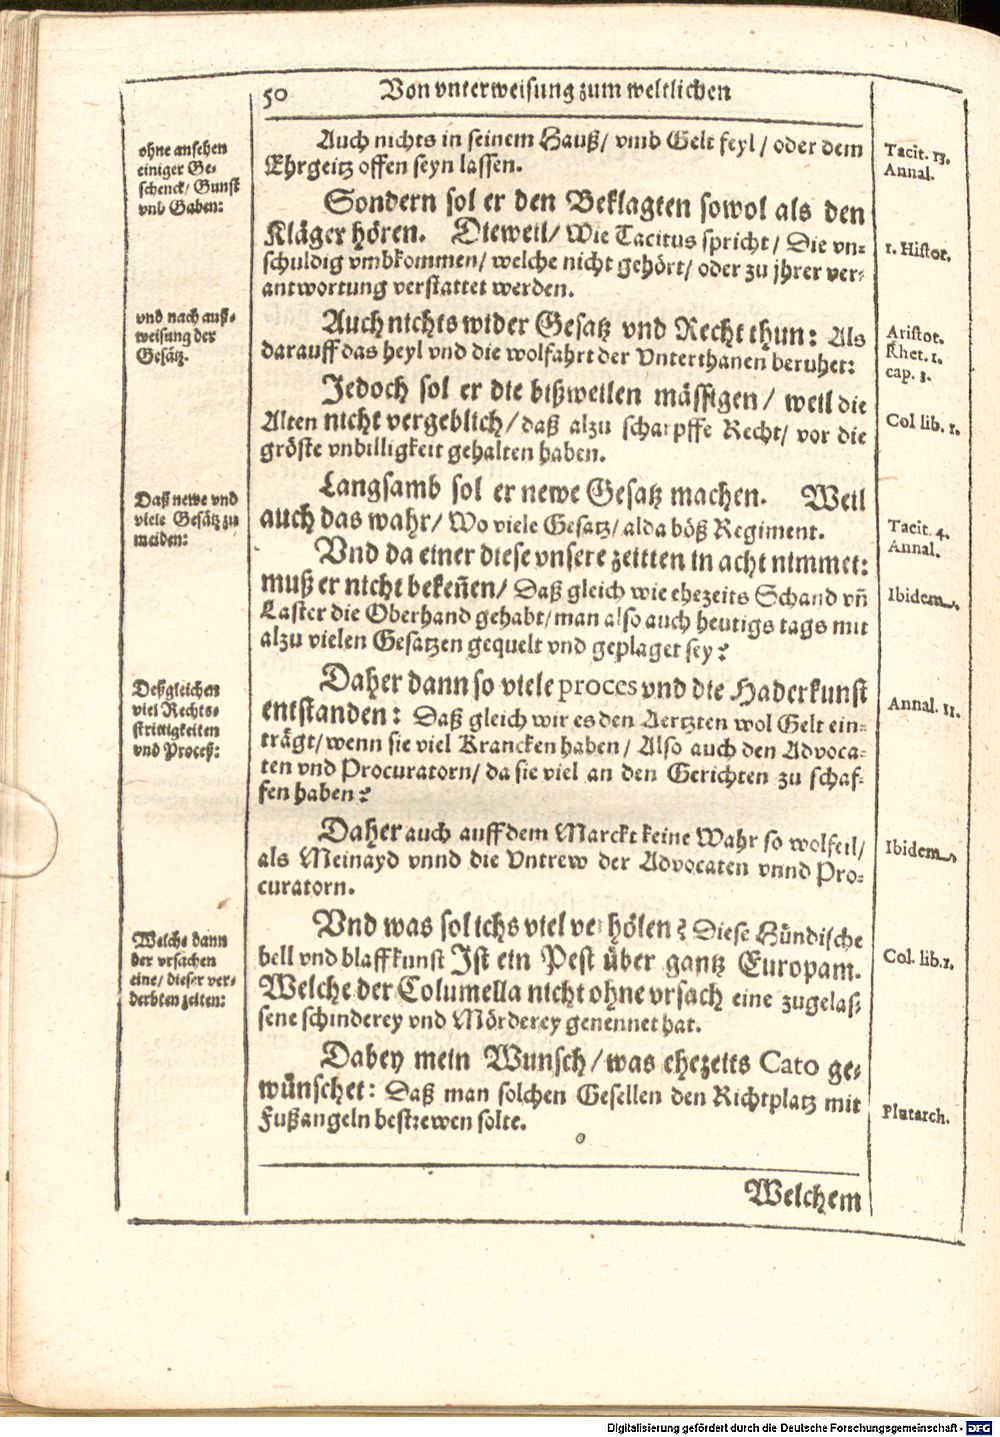 50 Von vnterweisung zum weltlichen
ohne ansehen
einiger Ge-
schenck/ Gunst
vnd Gaben:
Auch nichts in seinem Hauß/ vmb Gelt feyl/ oder dem
Ehrgeitz offen seyn lassen.
Tacit. 13.
Annal.
Sondern sol er den Beklagten sowol als den
Kläger hören. Dieweil/ Wie Tacitus spricht/ Die vn-
schuldig vmbkommen/ welche nicht gehört/ oder zu jhrer ver-
antwortung verstattet werden.
1. Histor.
vnd nach auß-
weisung der
Gesätz.
Auch nichts wider Gesatz vnd Recht thun: Als
darauff das heyl vnd die wolfahrt der Vnterthanen beruhet:
Aristot.
Rhet. 1.
cap. 3.
Jedoch sol er die bißweilen mässigen/ weil die
Alten nicht vergeblich/ daß alzu scharpffe Recht/ vor die
gröste vnbilligkeit gehalten haben.
Col lib. 1.
Daß newe vnd
viele Gesätz zu
meiden:
Langsamb sol er newe Gesatz machen. Weil
auch das wahr/ Wo viele Gesatz/ alda böß Regiment.
Tacit. 4.
Annal.
Vnd da einer diese vnsere zeitten in acht nimmet:
muß er nicht bekeñen/ Daß gleich wie ehezeits Schand vñ
Laster die Oberhand gehabt/ man also auch heutigs tags mit
alzu vielen Gesatzen gequelt vnd geplaget sey?
Ibidem.
Deßgleichen
viel Rechts-
strittigkeiten
vnd Proceß:
Daher dann so viele proces vnd die Haderkunst
entstanden: Daß gleich wir es den Aertzten wol Gelt ein-
trägt/ wenn sie viel Krancken haben/ Also auch den Advoca-
ten vnd Procuratorn/ da sie viel an den Gerichten zu schaf-
fen haben?
Annal. 11.
Daher auch auff dem Marckt keine Wahr so wolfeil/
als Meinayd vnnd die Vntrew der Advocaten vnnd Pro-
curatorn.
Ibidem,
Welche dann
der vrsachen
eine/ dieser ver-
derbten zeiten:
Vnd was sol ichs viel verhölen? Diese Hündische
bell vnd blaffkunst Ist ein Pest über gantz Europam.
Welche der Columella nicht ohne vrsach eine zugelas-
sene schinderey vnd Mörderey genennet hat.
Col. lib. 1.
Dabey mein Wunsch/ was ehezeits Cato ge-
wünschet: Daß man solchen Gesellen den Richtplatz mit
Fußangeln bestrewen solte.
Plutarch.
Welchem
Digitalisierung gefördert durch die Deutsche Forschungsgemeinschaft - DFG